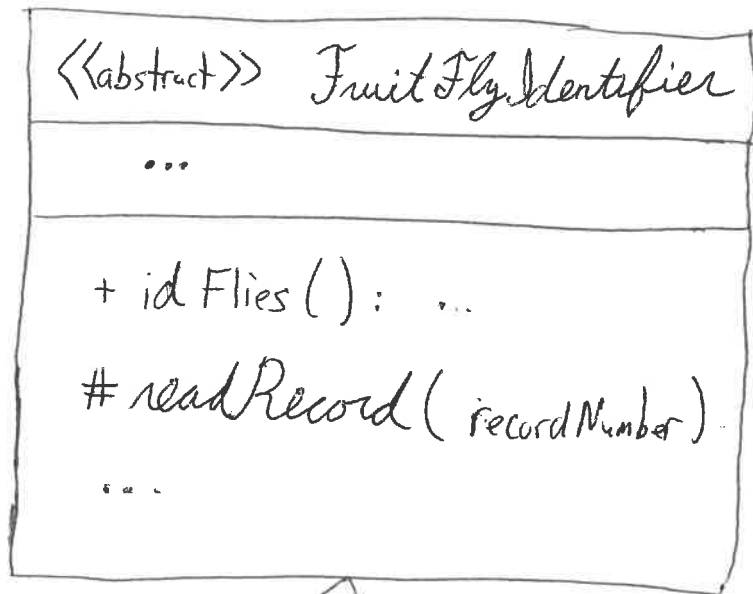 <<abstract>> FruitFlyIdentifier
...
+ idFlies(): ...
# readRecord(recordNumber)
...